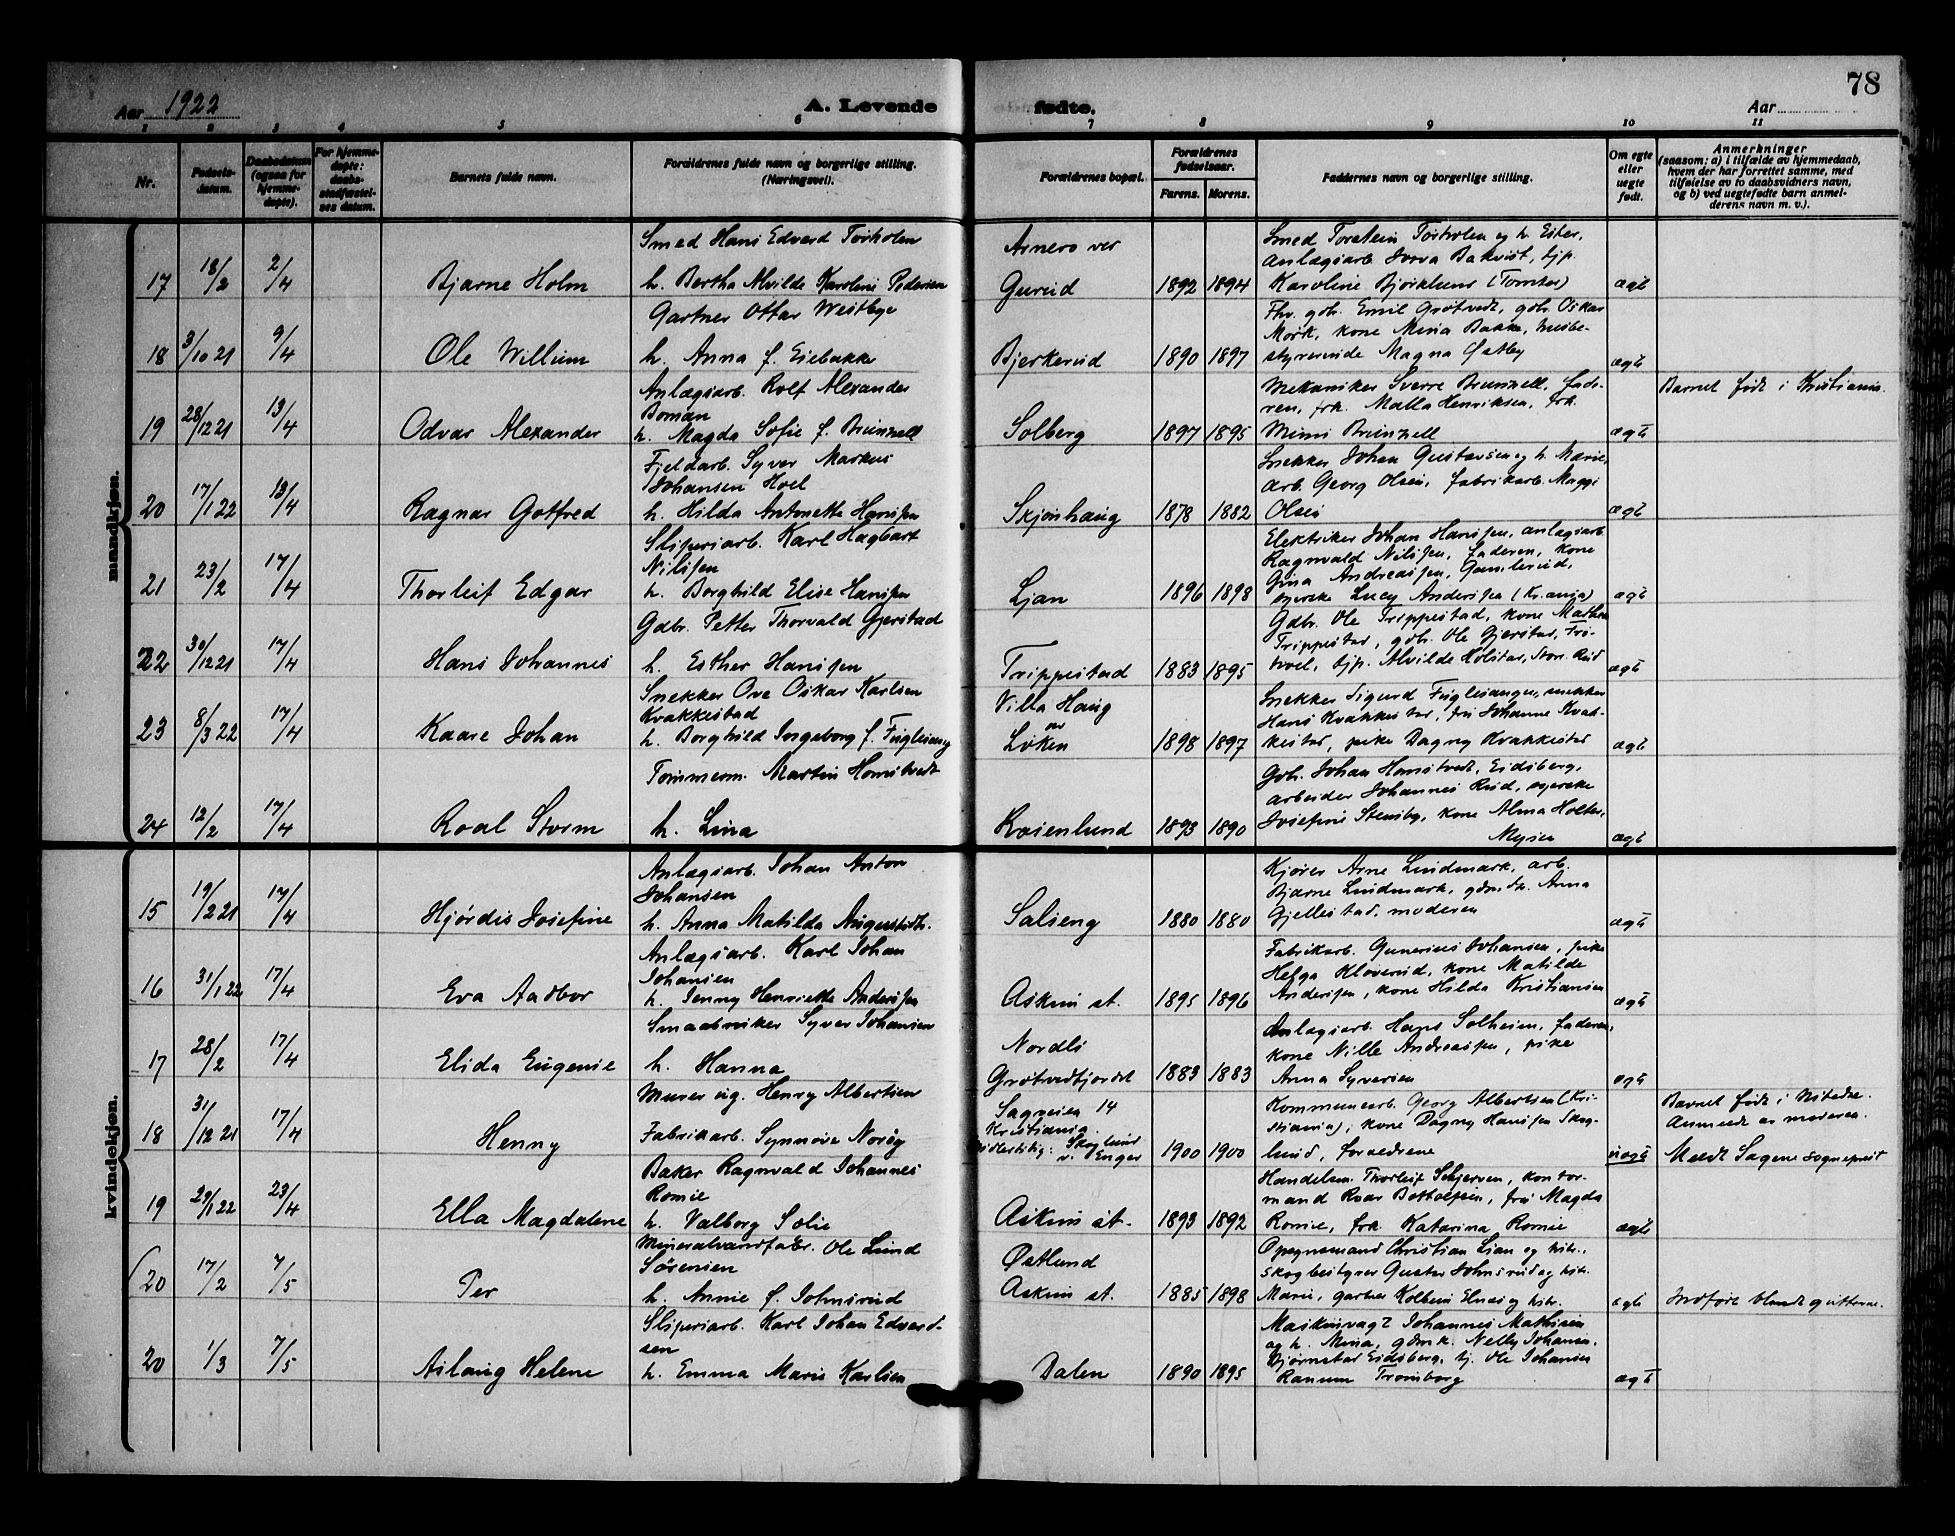 78
Aar 1922
A. Levende
fødte.
Aar
1 2 3 4 5 6 7 8 9 10 11
Nr.
Fødsels-
datum.
Daabsdatum
(ogsaa for
hjemme-
døpte).
For hjemme-
døpte:
daabs-
stadfæstel-
ses datum.
Barnets fulde navn.
Forældrenes fulde navn og borgerlige stilling.
(Næringsvei).
Forældrenes bopæl.
Forældrenes
fødselsaar.
Farens. Morens.
Faddernes navn og borgerlige stilling.
Om egte
eller
uegte
født.
Anmerkninger
(saasom: a) i tilfælde av hjemmedaab,
hvem der har forrettet samme, med
tilføielse av to daabsvidners navn,
og b) ved uegtefødte barn anmel-
derens navn m. v.).
mandkjøn.
Smed Hans Edvard Torholen
17 18/2 2/4 Bjarne Holm h. Bertha Alvilde Karoline Pedersen
Gartner Ottar Westbye
18 3/10 21 9/4 Ole Willum h. Anna f. Eiebakke
Anlægsarb. Rolf Alexander
Boman
19 28/12 21 13/4 Odvar Alexander h. Magda Sofie f. Brunzell
Fjeldarb. Syver Markus
Johansen Hoel
20 17/1 22 13/4 Ragnar Gotfred h. Hilda Antonette Hansen
Sliperiarb. Karl Hagbart
Nilssen
21 23/2 17/4 Thorleif Edgar h. Borghild Elise Hanssen
Gdbr. Petter Thorvald Gjerstad
22 30/12 21 17/4 Hans Johannes h. Esther Hanssen
Snekker Ove Oskar Karlsen
Krakkestad
23 8/3 22 17/4 Kaare Johan h. Borghild Ingeborg f. Fugleseng
Tømmerm. Martin Homstvedt
24 12/2 17/4 Roal Storm h. Lina
kvindekjøn.
Anlægsarb. Johan Anton
Johansen
15 19/12 21 17/4 Hjørdis Josefine h. Anna Matilda Augustsdtr.
Anlægsarb. Karl Johan
Johansen
16 31/1 22 17/4 Eva Aadbor h. Jenny Henriette Anderssen
Smaabruker Syver Johansen
17 28/2 17/4 Elida Eugenie h. Hanna
Murer ug. Henry Albertsen
18 31/12 21 17/4 Henny Fabrikarb. Synnøve Norby
Baker Ragnvald Johannes
Romie
19 29/1 22 23/4 Ella Magdalene h. Valborg Solie
Mineralvandfabr. Ole Lund
Sørensen
20 17/2 7/5 Per h. Annie f. Johnsrud
Sliperiarb. Karl Johan Edvard-
sen
20 1/3 7/5 Aslaug Helene h. Emma Marie Karlsen
Smed Torstein Torholen og h. Ester,
Gurud 1892 1894 Karoline Bjørklund (Tomter) ægte
Thv. gdr. Emil Grøtvedt, gdr. Oskar
Mørk, kone Mina Bakke, husbe-
Bjerkerud 1890 1897 styrerinde Magna Østby ægte
Mekaniker Sverre Brunzell, fade- Barnet født i Kristiania.
ren, frk. Malla Henriksen, frk.
Solberg 1897 1895 Mimi Brunzell ægte
Snekker Johan Gustavsen og h. Marie,
arb. Georg Olsen, fabrikarb. Maggi
Skjønhaug 1878 1882 Olsen ægte
Elektriker Johan Hanssen, anlægsarb.
Ragnvald Nilssen, faderen, kone
Gina Andreassen, Gamlerud,
Ljan 1896 1898 Lucy Anderssen (Kr.ania) ægte
Gdbr. Ole Trippestad, kone Mathea
Trippestad, gdb. Ole Gjerstad, Trø-
Trippestad 1883 1895 Alvilde Holstad, ægte
Villa Haug Snekker Sigurd Fugleseng, snekker
av Hans Krakkestad, fru Johanne Krak-
Løken 1898 1897 kestad, pike Dagny Krakkestad ægte
Gdb. Johan Hamstvedt, Eidsberg,
arbeider Johannes Rud,
Koienlund 1893 1890 Josefine Stensby, kone Alma Holter,
Mysen ægte
Kjører Arne Lindmark, arb.
Bjarne Lindmark, Anna
Salseng 1880 1880 Gjellestad, moderen ægte
Fabrikarb. Gunerius Johansen, pike
Helga Kloverud, kone Matilde
Askim st. 1895 1896 Anderssen, kone Hilda Kristiansen ægte
Nordli Anlægsarb. Hans Solheim, faderen,
kone Nille Andreassen, pike
Grøtvedtjordet 1883 1883 Anna Syversen ægte
Sagveien 14 Kommunearb. Georg Albertsen (Kri- Barnet født i Nitedal.
Kristiania. stiania), kone Dagny Hanssen Skog- Anmeldt av moderen.
midlertidig: Skoglund v. Enger 1900 1900 lund, forældrene uægte Meldt Sagene sogneprest
Handelsm. Thorleif Schjerven, kontor-
mand Roar Bottolfsen, fru Magda
Askim st. 1893 1892 Romie, frk. Katarina Romie ægte
Østlund Opsynsmand Christian Lian og hstr.,
skogbestyrer Gustav Johnsrud og hstr.
Askim st. 1885 1898 Marie, gartner Kolbein Elnæs og hstr. ægte Indført blandt guttene.
Maskinvagt Johannes Mathisen
og h. Mina, Nelly Johansen,
Bjørnstad Eidsberg, tj. Ole Johansen
Dalen 1890 1895 Ranum Trømborg ægte